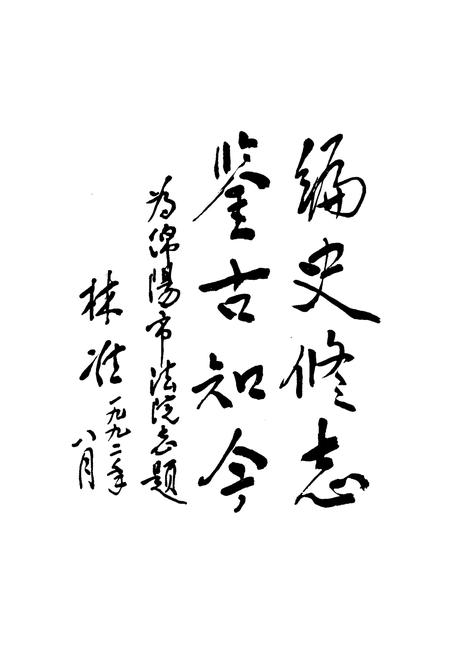 编史修志
鉴古知今
为绵阳市法院志题
林准 一九九二年
八月